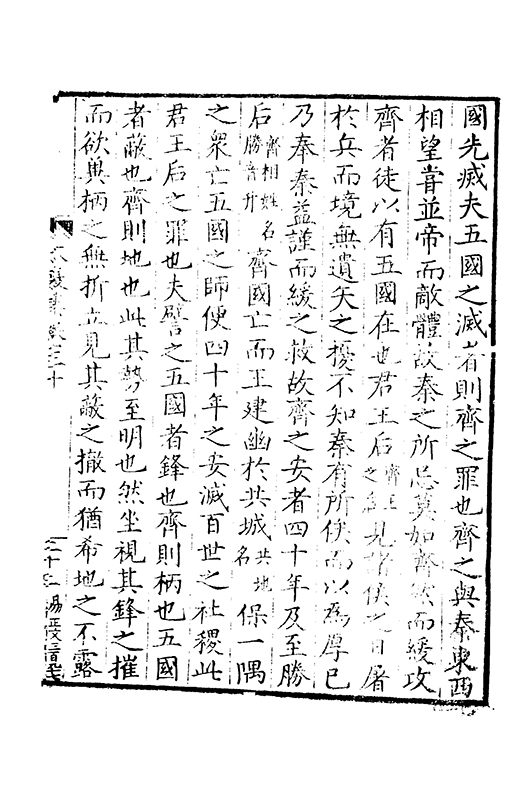 國先滅夫五國之滅者則齊之罪也齊之與秦東西
相望嘗並帝而敵體故秦之所忌莫如齊然而緩攻
齊者徒以有五國在也君王后齊王之后見諸侯之日屠
於兵而境無遺矢之擾不知秦有所俟而以為厚已
乃奉秦益謹而緩之救故齊之安者四十年及至勝
后齊相姓名勝音升齊國亡而王建幽於共城共地名保一隅
之衆亡五國之師便四十年之安滅百世之社稷此
君王后之罪也夫譬之五國者鋒也齊則柄也五國
者蔽也齊則地也此其勢至明也然坐視其鋒之摧
而欲與柄之無折立見其蔽之撤而猶希地之不露
三十三